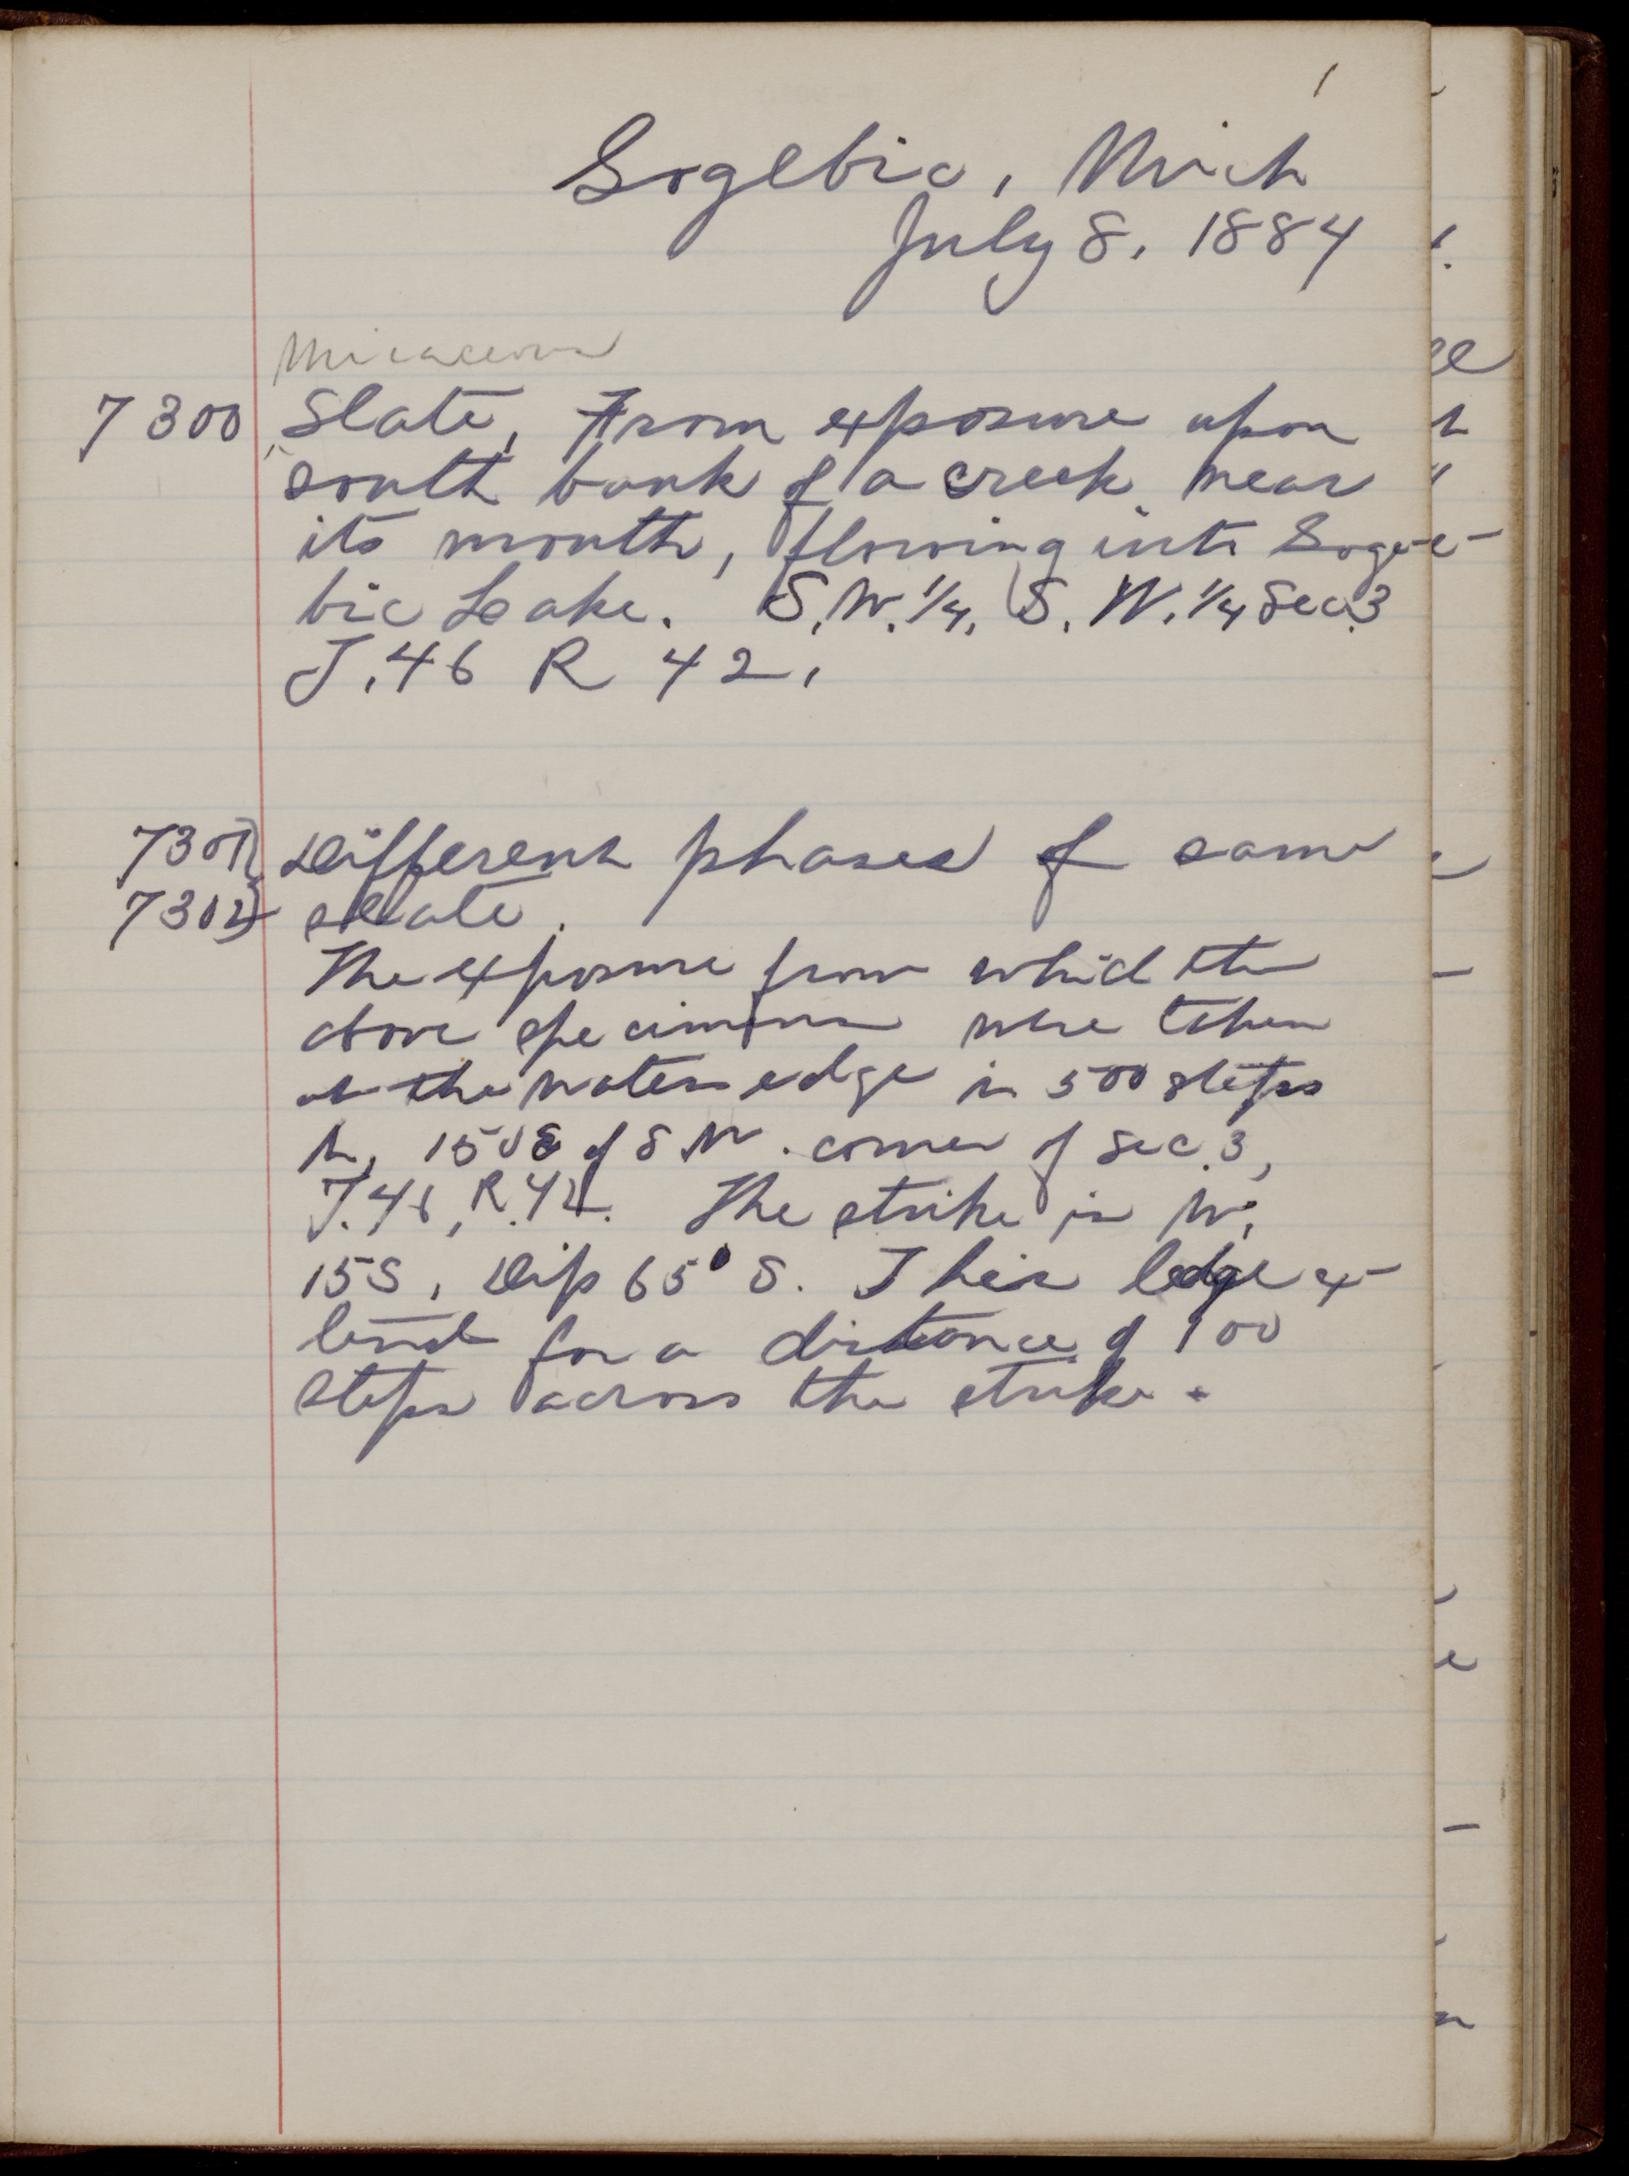 1
Gogebic, Mich
July 8, 1884
Micaceous
7300 Slate, From exposure upon
south bank of a creek near
its mouth, flowing into Goge-
bic Lake. S.W.1/4, S.W.1/4 Sec.3
T.46 R 42.
7301} Different phases of same
7302} slate.
The exposure from which the
above specimens were taken
at the waters edge is 500 steps
N, 150 of S W. corner of Sec.3,
T.46, R.42. The strike is W.
15S, Dip 65° S. This ledge ex-
tends for a distance of 100
steps across the strike.